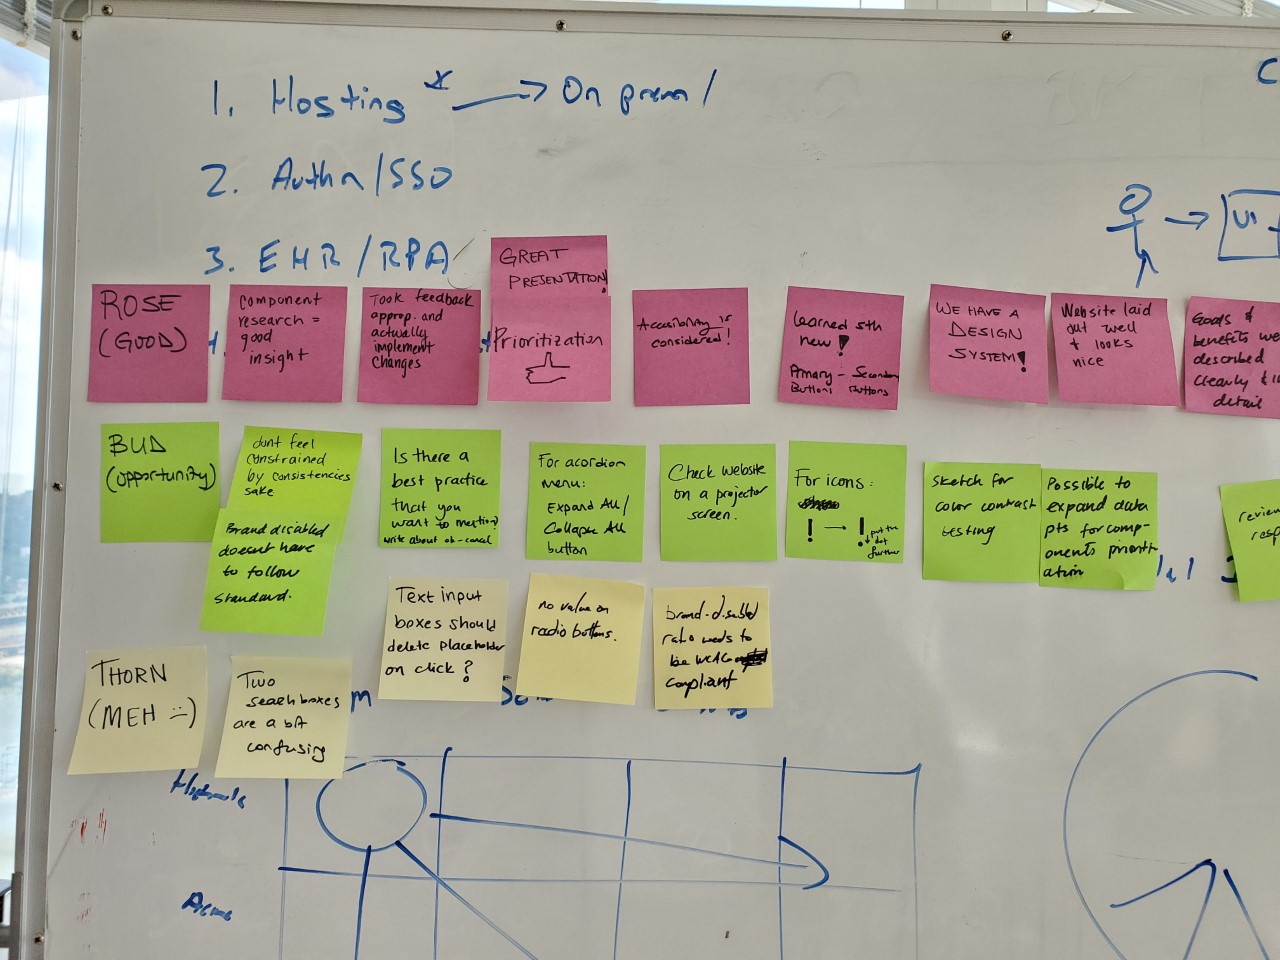 1. Hosting * → On prem /
2. Authn/SSO
3. EHR/RPA
C
UI
ROSE
(GOOD)
component
research =
good
insight
Took feedback
approp. and
actually
implement
changes
GREAT
PRESENTATION!
Prioritization
Accessibility is
considered!
Learned sth
new!
Primary - Secondary
Buttons Buttons
WE HAVE A
DESIGN
SYSTEM!
Website laid
out well
& looks
nice
Goals &
benefits we
described
clearly &
detail
BUD
(opportunity)
dont feel
constrained
by consistencies
sake
Brand disabled
doesnt have
to follow
standard.
Is there a
best practice
that you
want to mention?
write about ok-cancel
For acordion
menu:
Expand All/
Collapse All
button
Check website
on a projector
screen.
For icons:
! → !
put the
dot
further
Sketch for
color contrast
testing
Possible to
expand data
pts for comp-
onents prioriti-
ation
review
resp
THORN
(MEH :-)
Two
search boxes
are a bit
confusing
Text input
boxes should
delete placeholder
on click?
no value on
radio buttons.
brand-disabled
ratio needs to
be WCAG
compliant
Acme